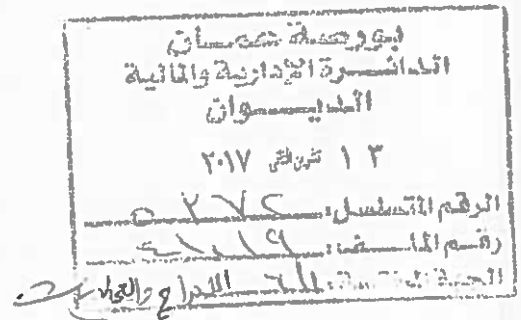 بورصة عمان
الدائرة الإدارية والمالية
الديوان
١٣ تشرين الثاني ٢٠١٧
الرقم المتسلسل: ٥٢٧٢
رقم الملف:
الجهة المختصة: الإدراج